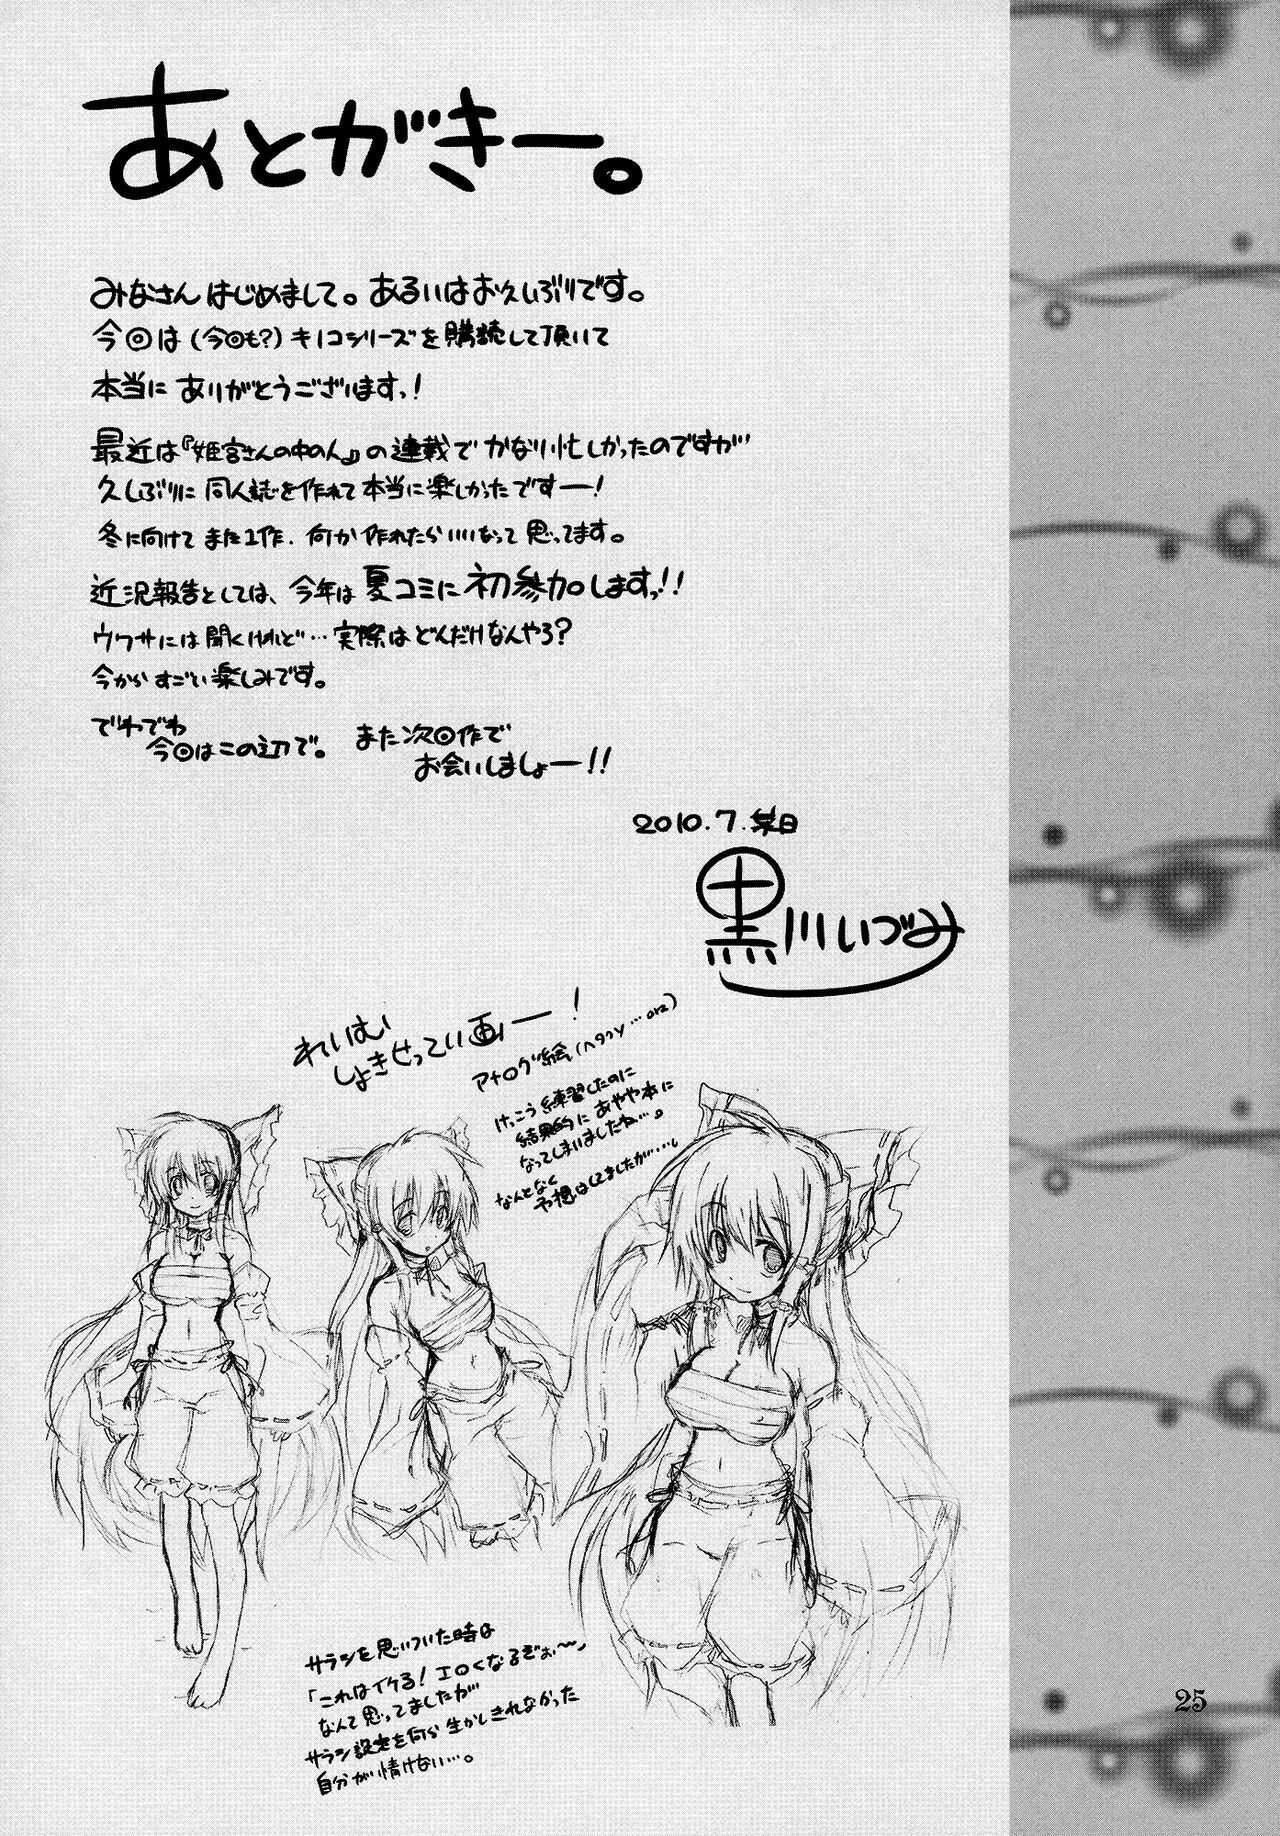 あとがきー。
みなさん はじめまして。あるいはお久しぶりです。
今回は(今回も?)キノコシリーズを購読して頂いて
本当に ありがとうございますっ!
最近は『姫宮さんの中の人』の連載で かなり忙しかったのですが…
久しぶりに 同人誌を作れて本当に楽しかったですー!
冬に向けて また1作、何か作れたらいいなって思ってます。
近況報告としては、今年は夏コミに初参加しますっ!!
ウワサには聞くけれど…実際はどんだけなんやろ?
今からすごい楽しみです。
でわでわ
今回はこの辺で。また次回作で
お会いしましょー!!
2010.7.某日
黒川いづみ
れいむ
しょきせってい画ー!
アナログ絵(ヘタクソ…orz)
けっこう練習したのに
結果的に あやや本に
なってしまいましたね…。
なんとなく
予想はしてましたが…
サラシを思いついた時は
「これはイケる!エロくなるぞぉ〜」
なんて思ってましたが
サラシ設定を何ら生かしきれなかった
自分が情けない…。
25